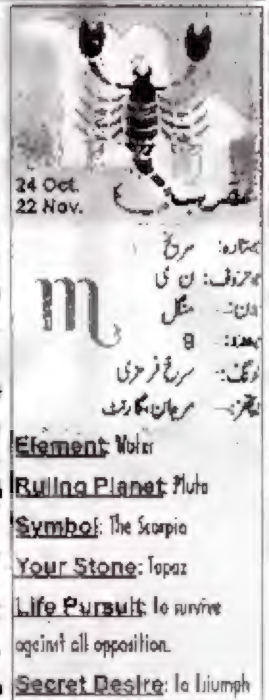 24 Oct.
22 Nov.
عقرب
ستارہ: مریخ
حروف: ن ی
دن: منگل
عدد: 9
رنگ: سرخ قرمزی
پتھر: مرجان، گارنٹ
Element: Water
Ruling Planet: Pluto
Symbol: The Scorpio
Your Stone: Topaz
Life Pursuit: To survive
against all opposition.
Secret Desire: To triumph